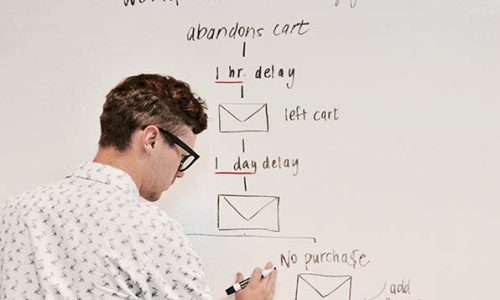 abandons cart
1 hr. delay
left cart
1 day delay
No purchase
add